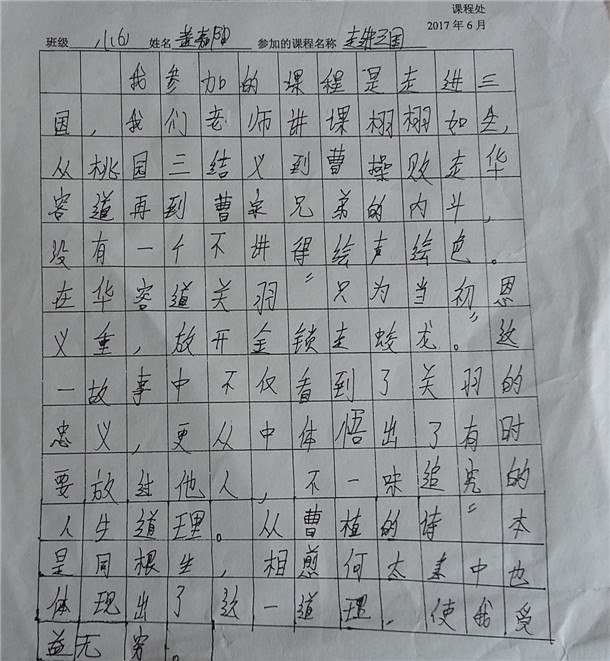 课程处
2017 年 6 月
班级 八(6) 姓名 参加的课程名称 走进三国
我参加的课程是走进三
国，我们老师讲课栩栩如生，
从桃园三结义到曹操败走华
容道再到曹家兄弟的内斗，
没有一个不讲得绘声绘色。
在华容道关羽“只为当初恩
义重，放开金锁走蛟龙。”这
一故事中不仅看到了关羽的
忠义，更从中体悟出了有时
要放过他人，不一味追究的
人生道理。从曹植的诗“本
是同根生，相煎何太来中也
体现出了这一道理．使我受
益无穷。